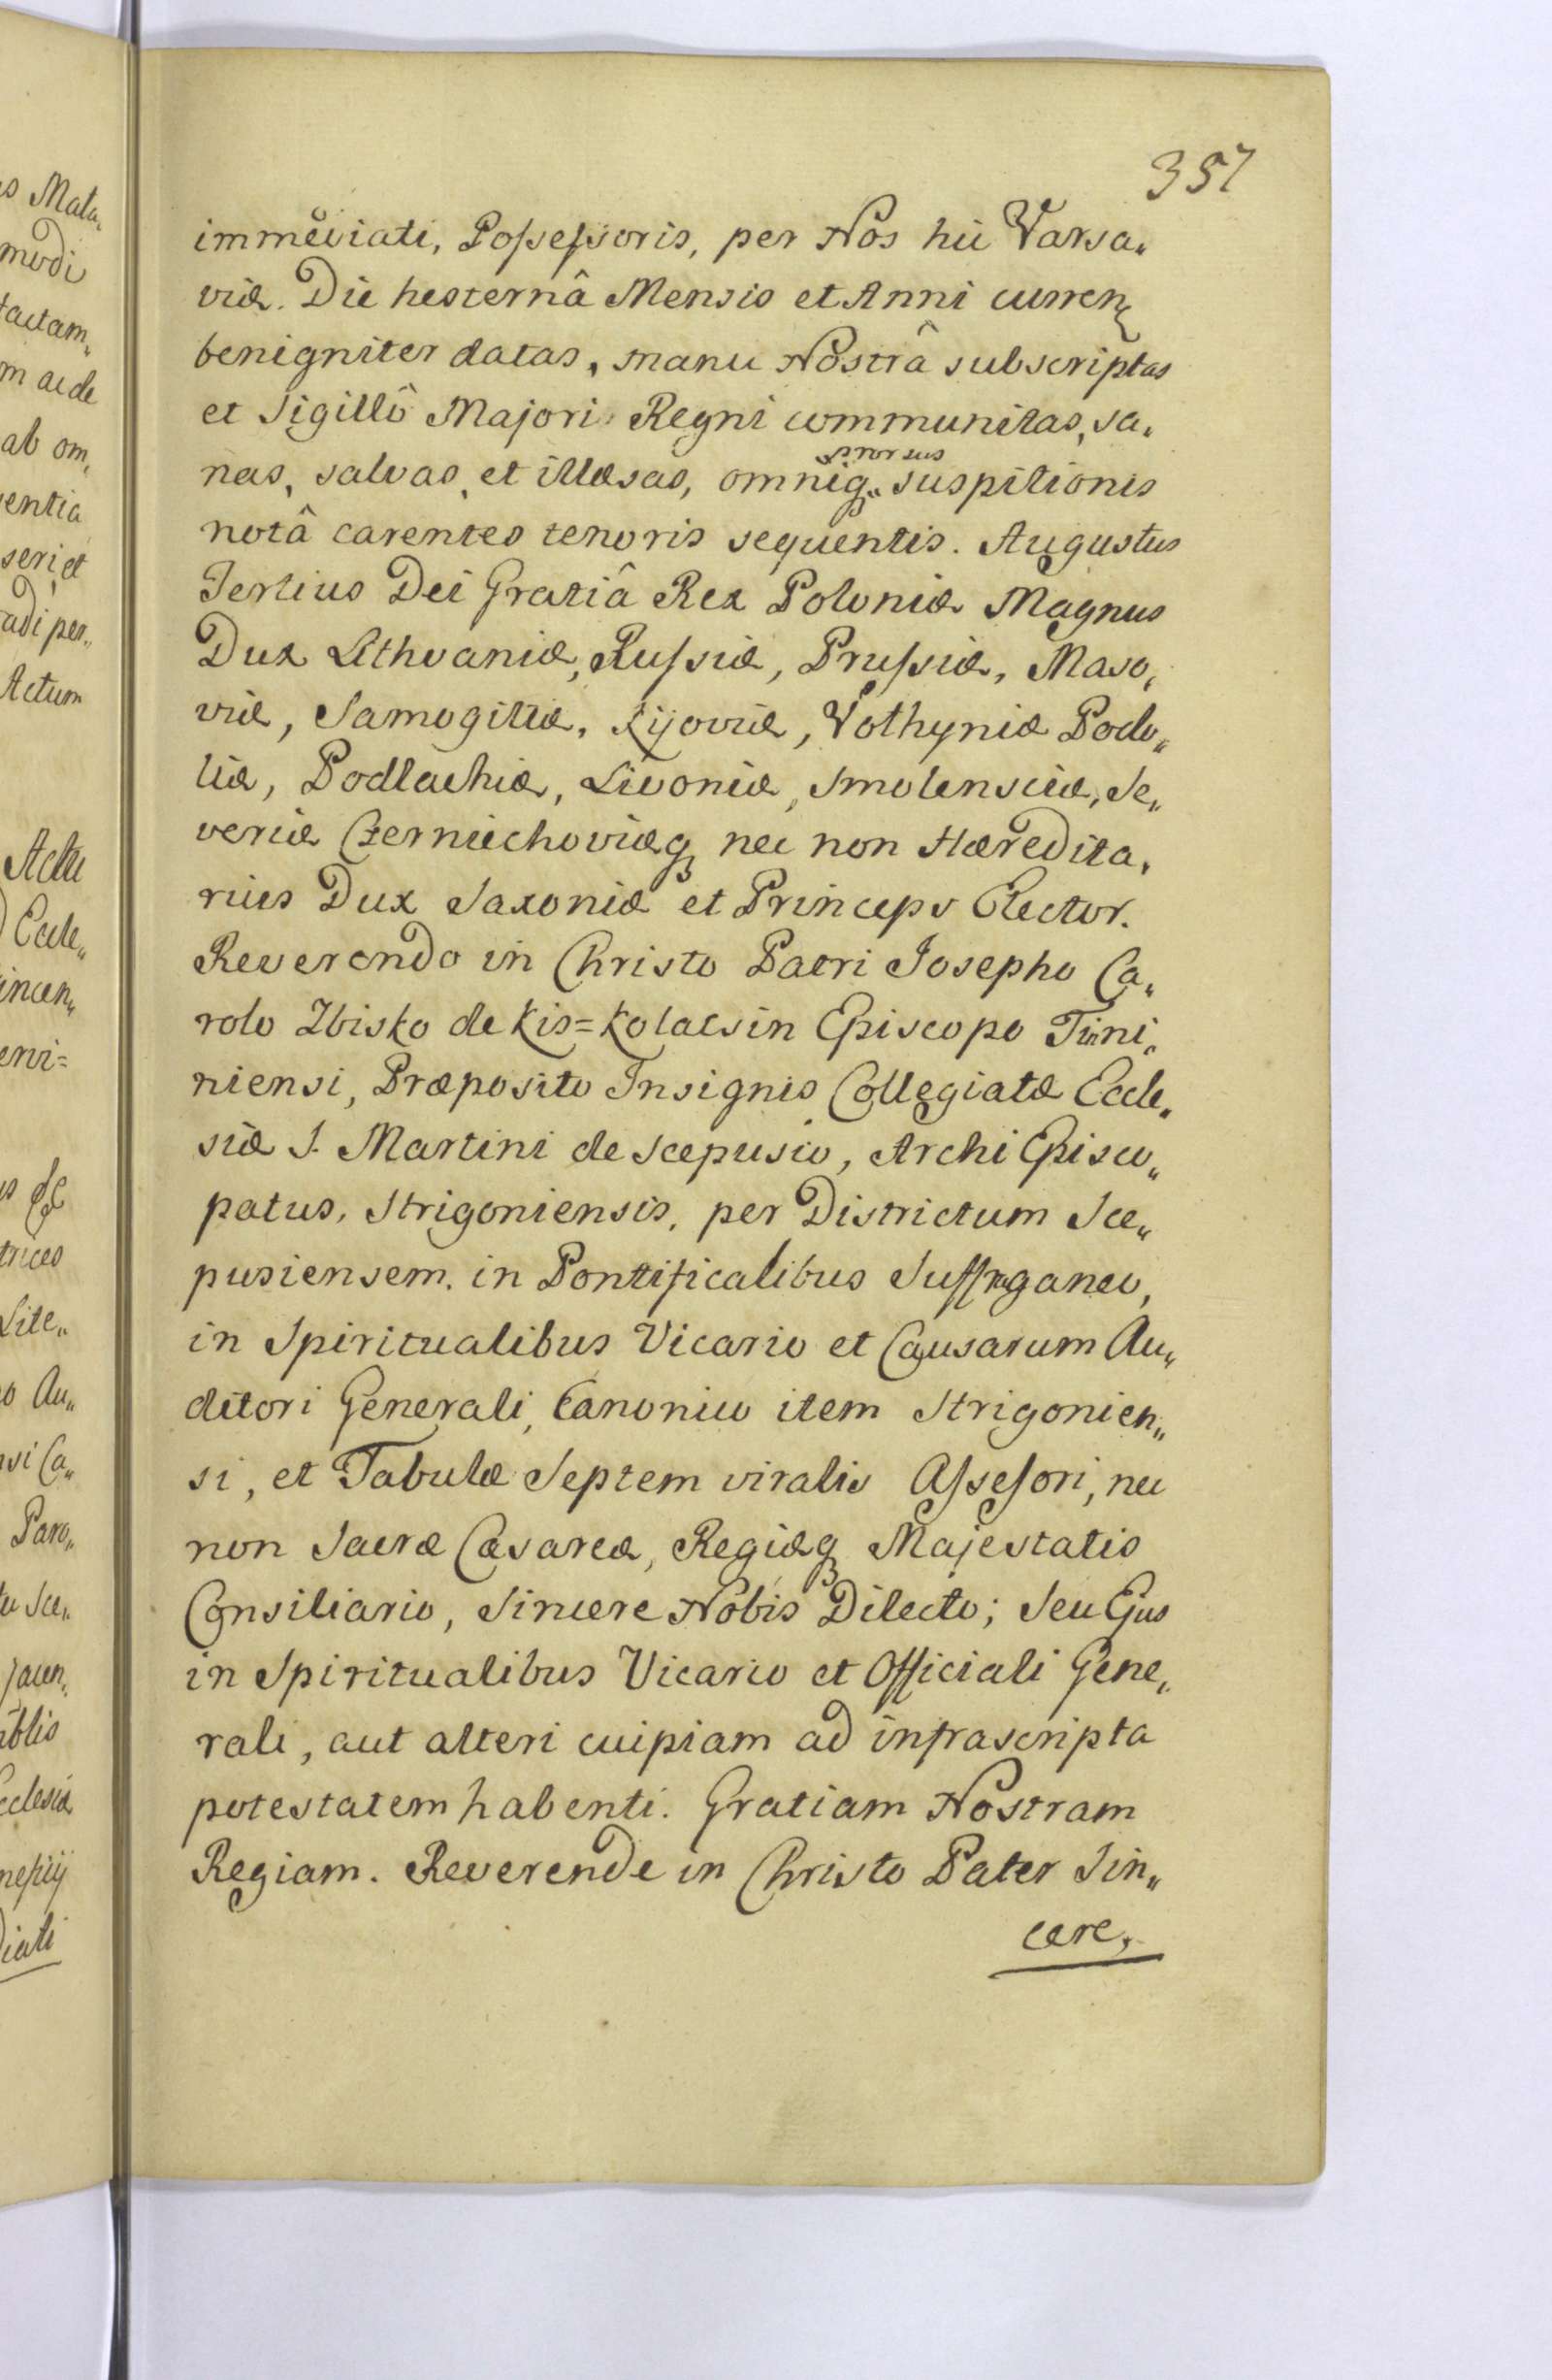 357
immediati, Possessoris, per Nos hic Varsa„
viæ. Die hesternâ Mensis et Anni curren
benigniter datas, manu Nostrâ subscriptas
et Sigillô Majori Regni communitas, sa„
prorsus
nas, salvas, et illæsas, omniq„ suspitionis
notâ carentes tenoris sequentis. Augustus
Tertius Dei Gratiâ Rex Poloniæ Magnus
Dux Lithvaniæ, Russiæ, Prussiæ, Maso„
viæ, Samogitiæ, Kijoviæ, Volhyniæ Podo„
liæ, Podlachiæ, Livoniæ, Smolensciæ, Se„
veriæ Czerniechoviæq nec non Hæredita„
rius Dux Saxoniæ et Princeps Elector.
Reverendo in Christo Patri Josepho Ca„
rolo Zbisko de Kis=Kolacsin Episcopo Tinni„
niensi, Præposito Insignis Collegiatæ Eccle„
siæ S. Martini de Scepusio, Archi Episco„
patus, Strigoniensis, per Districtum Sce„
pusiensem. in Pontificalibus Suffraganeo,
in Spiritualibus Vicario et Causarum Au„
ditori Generali, Canonico item Strigonien„
si, et Tabulæ Septem viralis Assesori, nec
non Sacræ Cæsareæ, Regiæq Majestatis
Consiliario, Sincere Nobis Dilecto; Seu Ejus
in Spiritualibus Vicario et Officiali Gene„
rali, aut alteri cuipiam ad infrascripta
potestatem habenti. Gratiam Nostram
Regiam. Reverende in Christo Pater Sin„
cere,